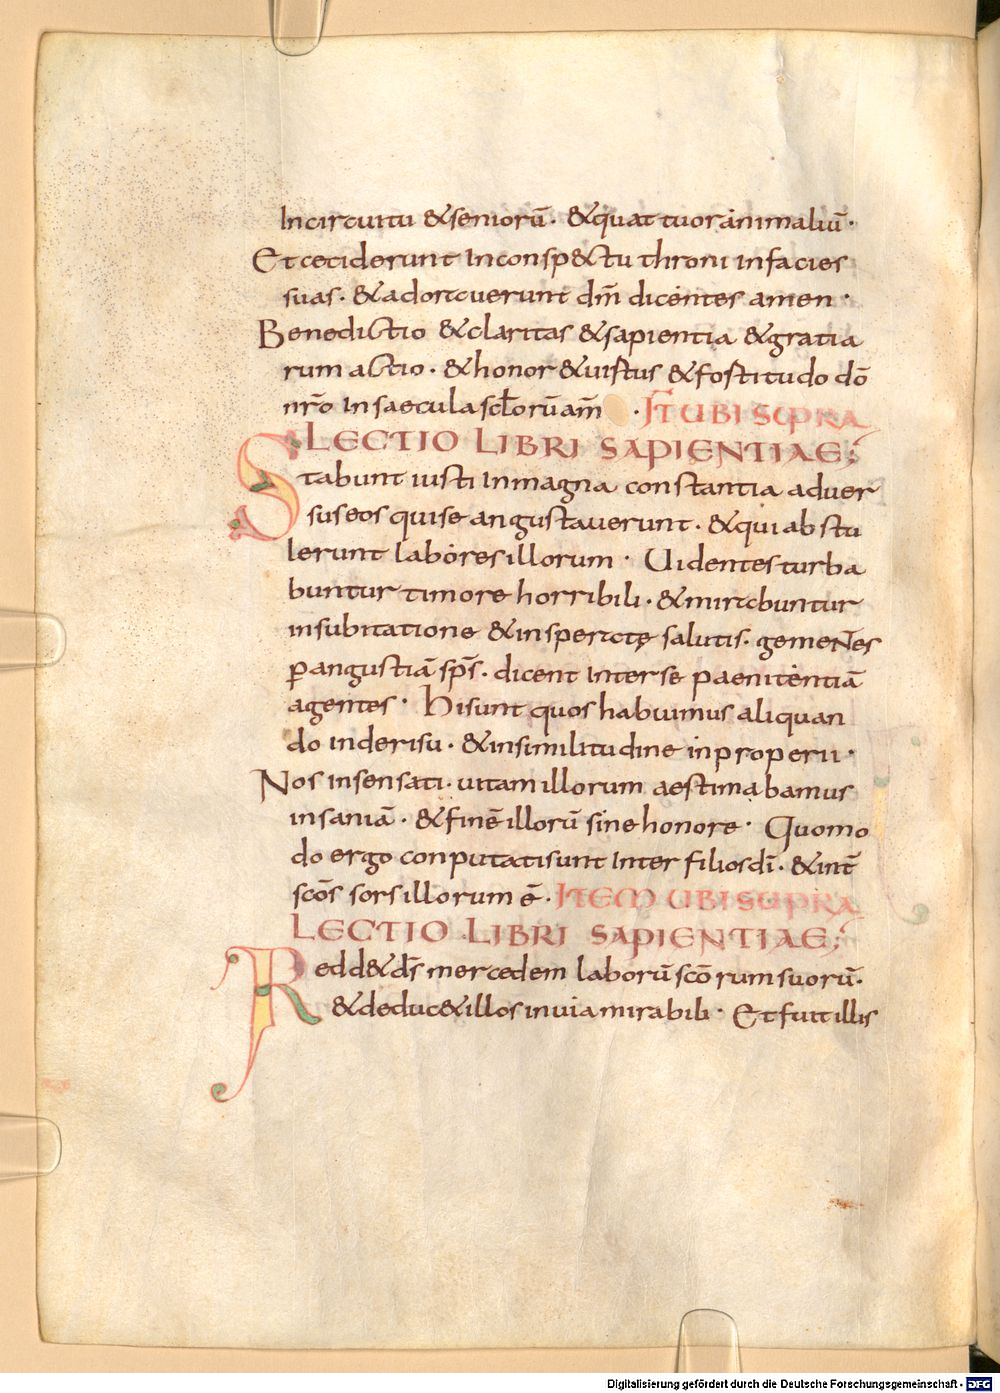 In circuitu & seniorū · & quattuor animaliū ·
Et ceciderunt In consp&ctu throni in facies
suas · & adoraverunt dm̄ dicentes amen ·
Benedictio & claritas & sapientia & gratia
rum actio · & honor & uirtus & fortitudo dō
nrō In saecula scl̄orū am̄ · IT UBI SUPRA
LECTIO LIBRI SAPIENTIAE;
Stabunt iusti In magna constantia aduer
sus eos qui se angustauerunt · & qui abstu
lerunt labores illorum · Uidentes turba
buntur timore horribili · & mirabuntur
in subitatione & insperatę salutis · gementes
p̄ angustiā sp̄s · dicent Inter se paenitentiā
agentes · Hi sunt quos habuimus aliquan
do in derisu · & in similitudine inproperii ·
Nos insensati · uitam illorum aestimabamus
insaniā · & finē illorū sine honore · Quomo
do ergo conputati sunt Inter filios dī · & int̄
scōs sors illorum ē · ITEM UBI SUPRA
LECTIO LIBRI SAPIENTIAE;
Redd& ds̄ mercedem laborū scōrum suorū ·
& deduc& illos in uia mirabili · Et fuit illis
Digitalisierung gefördert durch die Deutsche Forschungsgemeinschaft - DFG